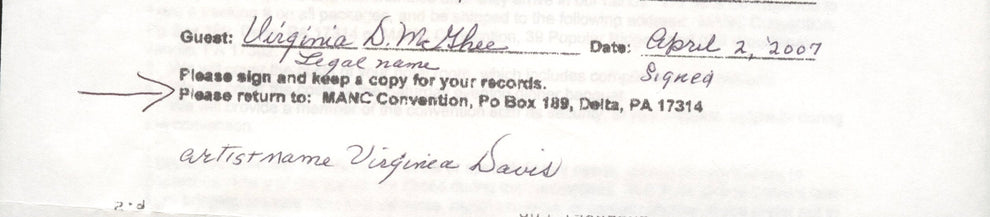 Guest: Virginia D. McGhee Date: April 2, 2007
Legal name Signed
Please sign and keep a copy for your records.
Please return to: MANC Convention, Po Box 189, Delta, PA 17314
artist name Virginia Davis